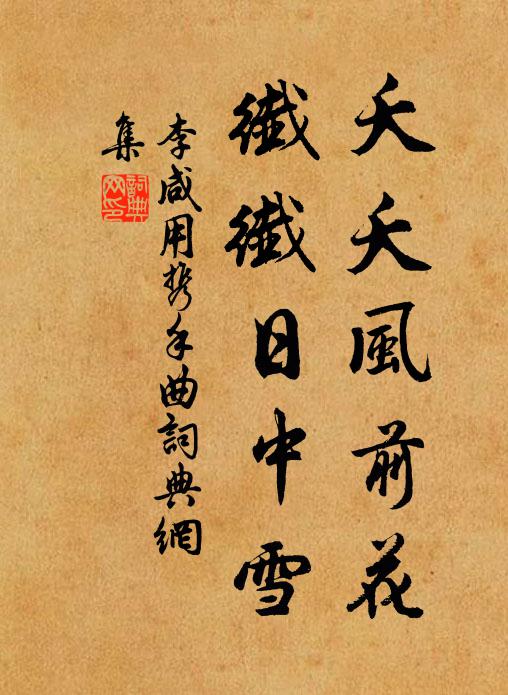 夭夭風前花
纖纖日中雪
李咸用携手曲詞典網
集
詞典
网印